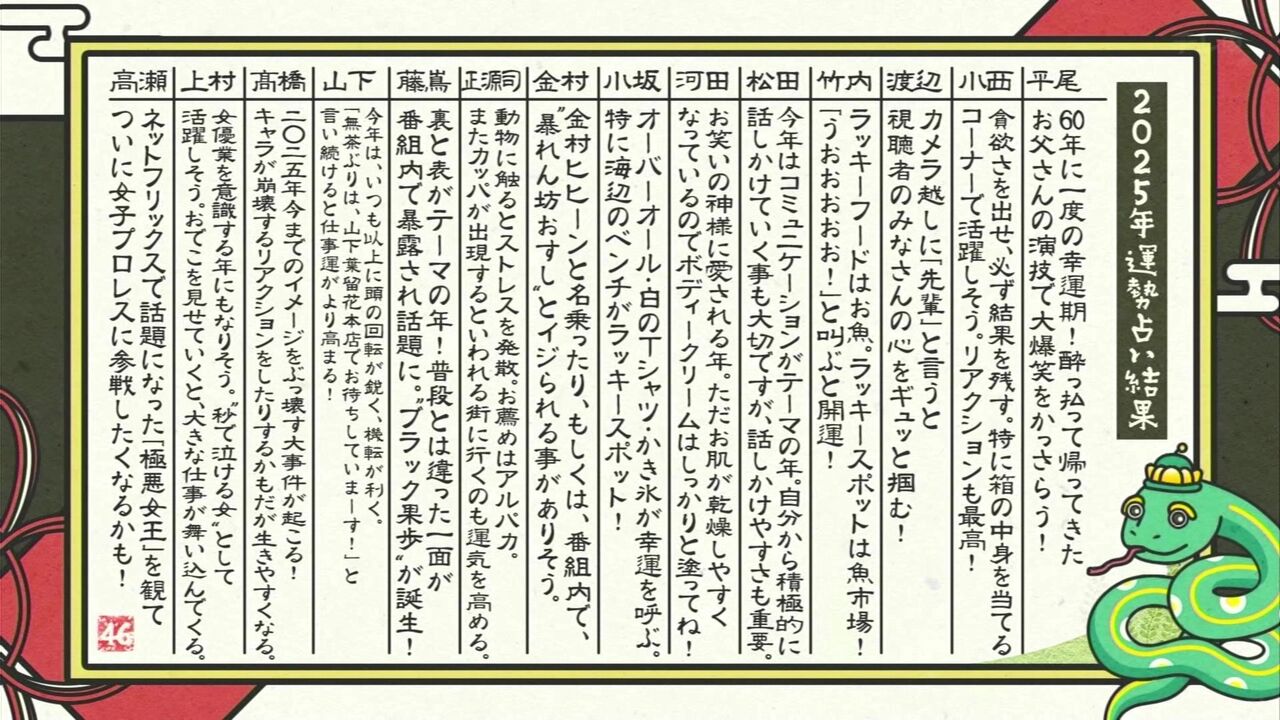 2025年 運勢占い結果
平尾
60年に一度の幸運期！酔っ払って帰ってきた
お父さんの演技で大爆笑をかっさらう！
小西
貪欲さを出せ、必ず結果を残す。特に箱の中身を当てる
コーナーで活躍しそう。リアクションも最高！
渡辺
カメラ越しに「先輩」と言うと
視聴者のみなさんの心をギュッと掴む！
竹内
ラッキーフードはお魚。ラッキースポットは魚市場！
「うおおおおお！」と叫ぶと開運！
松田
今年はコミュニケーションがテーマの年。自分から積極的に
話しかけていく事も大切ですが、話しかけやすさも重要。
河田
お笑いの神様に愛される年。ただお肌が乾燥しやすく
なっているのでボディークリームはしっかりと塗ってね！
小坂
オーバーオール・白のTシャツ・かき氷が幸運を呼ぶ。
特に海辺のベンチがラッキースポット！
金村
“金村ヒヒーンと名乗ったり、もしくは、番組内で、
“暴れん坊おすし”とイジられる事がありそう。
正源司
動物に触るとストレスを発散。お薦めはアルパカ。
またカッパが出現するといわれる街に行くのも運気を高める。
藤嶌
裏と表がテーマの年！普段とは違った一面が
番組内で暴露され話題に。“ブラック果歩”が誕生！
山下
今年は、いつも以上に頭の回転が鋭く、機転が利く。
「無茶ぶりは、山下葉留花本店でお待ちしていまーす！」と
言い続けると仕事運がより高まる！
髙橋
二〇二五年今までのイメージをぶっ壊す大事件が起こる！
キャラが崩壊するリアクションをしたりするかもだが生きやすくなる。
上村
女優業を意識する年にもなりそう。“秒で泣ける女”として
活躍しそう。おでこを見せていくと、大きな仕事が舞い込んでくる。
高瀬
ネットフリックスで話題になった「極悪女王」を観て
ついに女子プロレスに参戦したくなるかも！
46